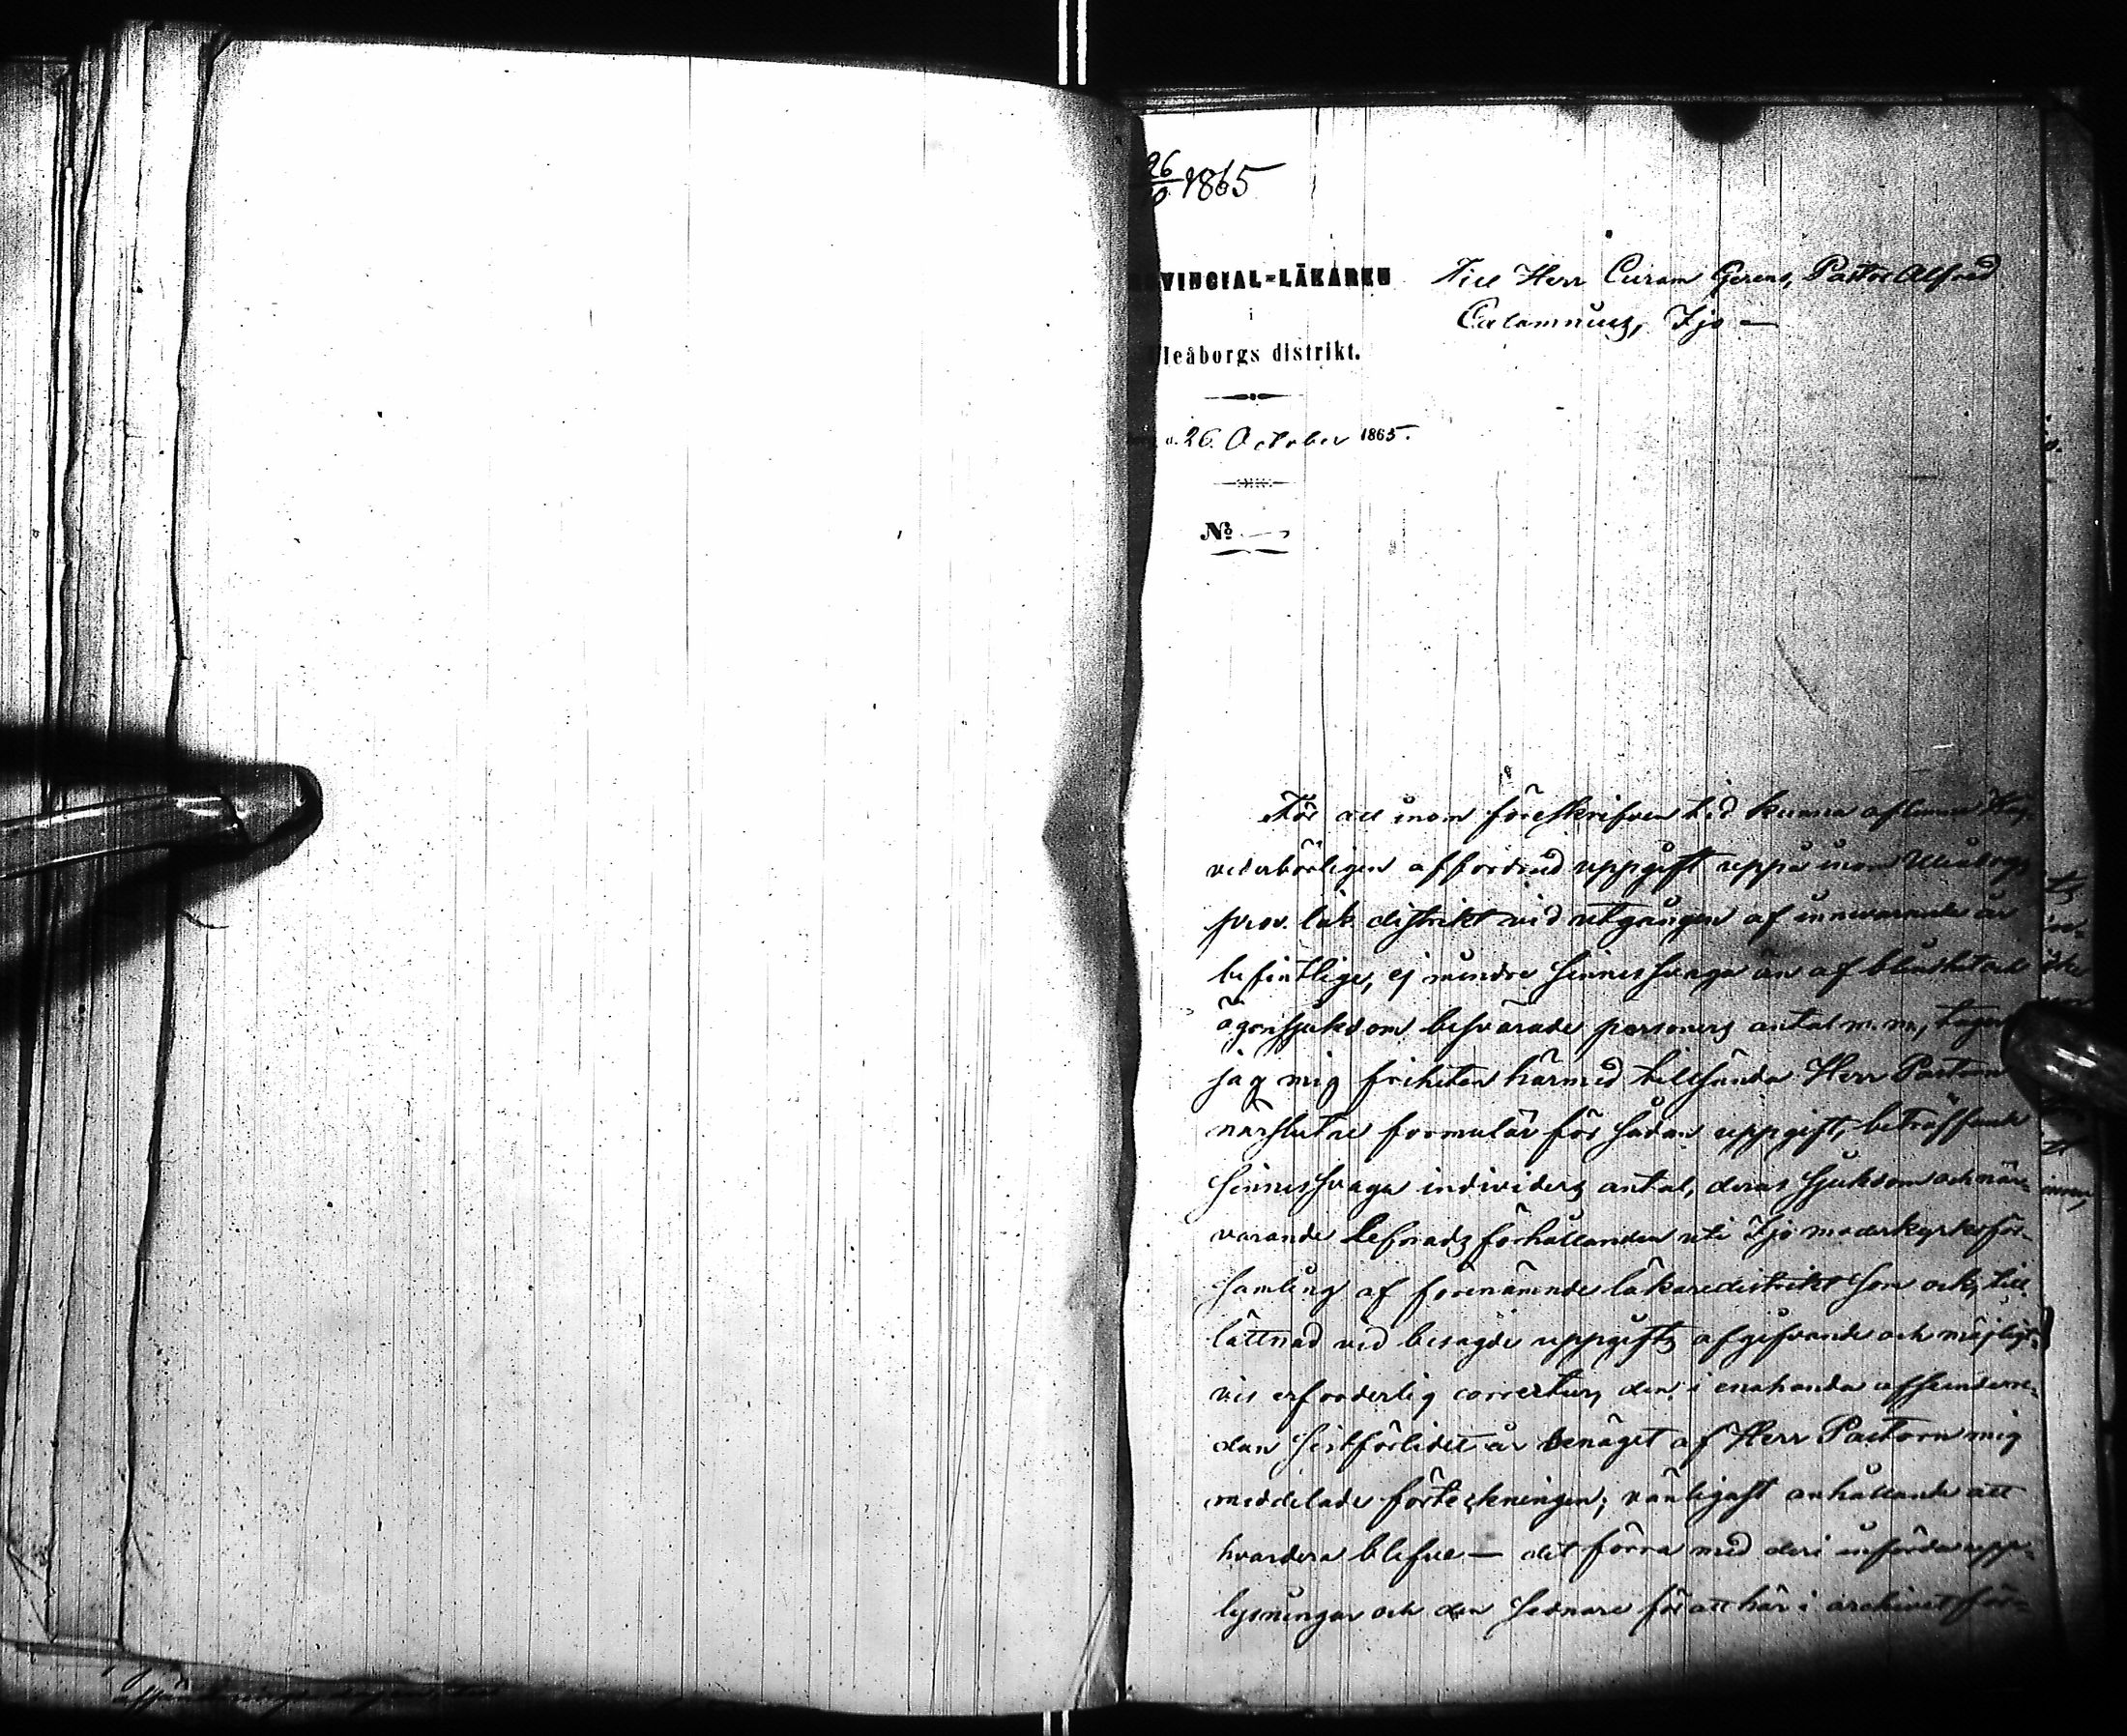 26/10 1865
VINCIAL-LÄKAREN
i
leåborgs distrikt.
d. 26. October 1865.
No
Till Herr Curam Gerens, Pastor Alfred
Calamnius, Ijo —
För att inom föreskrifven tid kunna aflemna
vederbörligen affordrad uppgift uppå inom Uleåborgs
prov. läk. distrikt vid utgången af innevarande år
befintlige, ej mindre sinnessvaga än af blindhet och
ögonsjukdom besvärade personers antal m.m., tager
jag mig friheten härmed tillsända Herr Pastorn
närslutne formulär för sådan uppgift, beträffande
sinnessvaga individers antal, deras sjukdom och när-
varande Lefnadsförhållanden uti Ijo moderkyrkoför-
samling af förenämnde läkaredistrikt som ock, till
lättnad vid besagde uppgifts afgifvande och möjligt-
vis erforderlig correctur, den i enahanda afseende re-
dan sistförlidet år benäget af Herr Pastorn mig
meddelade förteckningen; vänligast anhållande att
hvardera blefve — det förra med deri införda upp-
lysningar och den sednare för att här i archivet för-